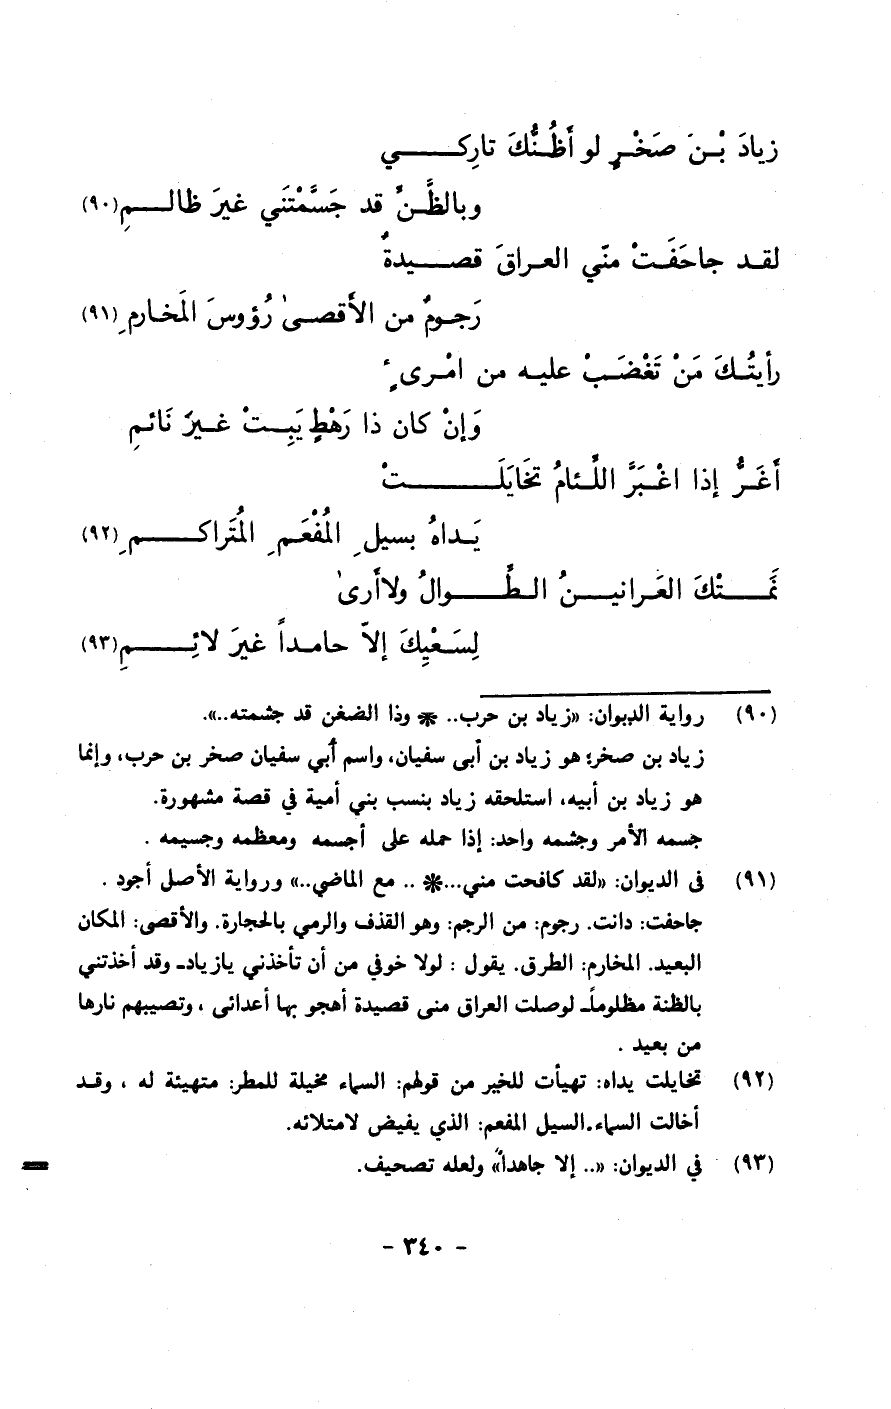 زيادَ بْنَ صَخْرٍ لو أَظُنُّكَ تارِكي
وبالظَّنِّ قد جَسَّمْتَني غيرَ ظالمِ(٩٠)
لقد جاحَفَتْ منّي العراقَ قصيدةٌ
رَجومٌ من الأقصىٰ رُؤوسَ المَخارمِ(٩١)
رأيتُكَ مَنْ تَغْضَبْ عليه من امْرىءٍ
وَإنْ كان ذا رَهْطٍ يَبِتْ غيرَ نَائمِ
أَغَرُّ إذا اغْبَرَّ اللِّئامُ تَخَايَلَتْ
يَداهُ بسيلِ المُفْعَمِ المُتَراكمِ(٩٢)
نَمَتْكَ العَرانينُ الطِّوالُ ولاأرىٰ
لِسَعْيِكَ إلاّ حامداً غيرَ لائِمِ(٩٣)
(٩٠) رواية الديوان: «زياد بن حرب.. * وذا الضغن قد جشمته..».
زياد بن صخر؛ هو زياد بن أبى سفيان، واسم أبي سفيان صخر بن حرب، وإنما
هو زياد بن أبيه، استلحقه زياد بنسب بني أمية في قصة مشهورة.
جسمه الأمر وجشمه واحد: إذا حمله على أجسمه ومعظمه وجسيمه .
(٩١) فى الديوان: «لقد كافحت مني...* .. مع الماضي..» ورواية الأصل أجود .
جاحفت: دانت. رجوم: من الرجم: وهو القذف والرمي بالحجارة. والأقصى: المكان
البعيد. المخارم: الطرق. يقول : لولا خوفي من أن تأخذني يازياد- وقد أخذتني
بالظنة مظلوماً- لوصلت العراق منى قصيدة أهجو بها أعدائى ، وتصيبهم نارها
من بعيد .
(٩٢) تخايلت يداه: تهيأت للخير من قولهم: السماء مخيلة للمطر: متهيئة له ، وقد
أخالت السماء.السيل المفعم: الذي يفيض لامتلائه.
(٩٣) في الديوان: «.. إلا جاهداً» ولعله تصحيف.
- ٣٤٠ -